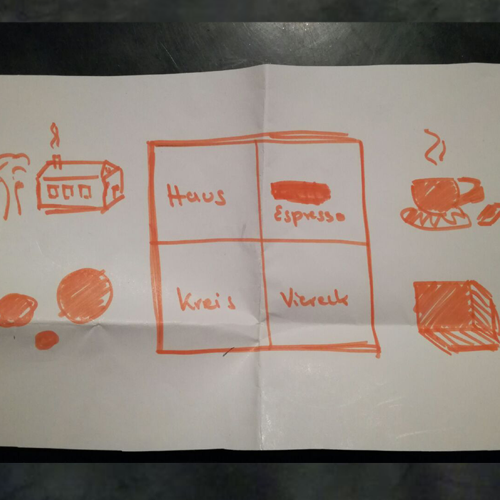 Haus
Espresso
Kreis
Viereck